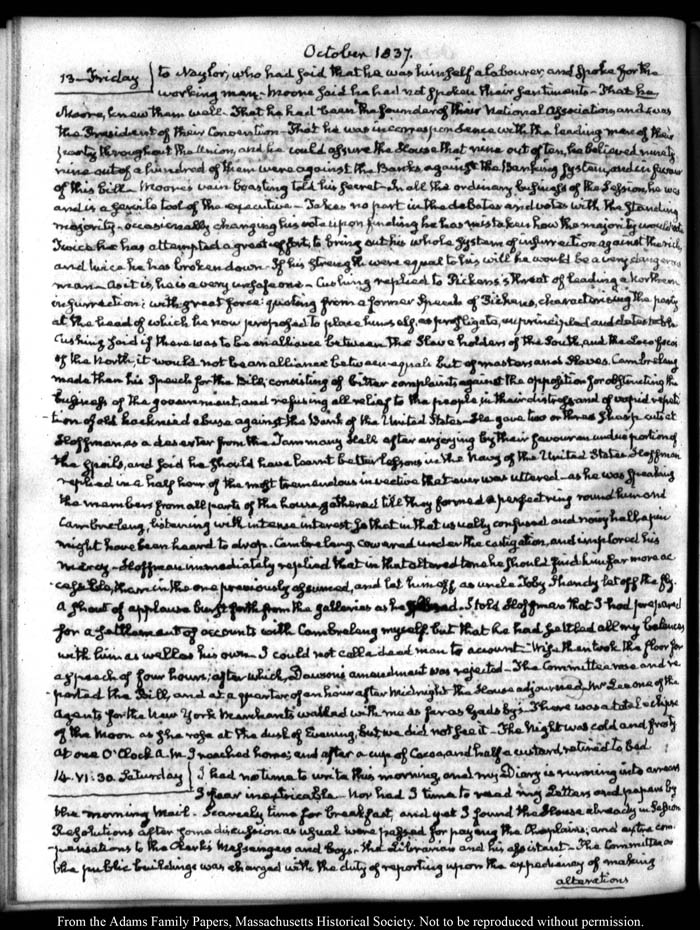 October 1837.
13 – Friday } to Naylor, who had said that he was himself a labourer, and spoke for the
working man – Moore said he had not spoken their sentiments – That he,
Moore, knew them well – That he had been the founder of their National Association, and was
the President of their Convention – That he was in correspondence with the leading men of their
party throughout the Union, and he could assure the House that nine out of ten, he believed ninety
nine out of a hundred of them were against the Banks against the Banking System, and in favour
of this bill – Moore's vain boasting told his secret – In all the ordinary business of the Session, he was
and is a servile tool of the executive – Takes no part in the debates and votes with the standing
majority – occasionally changing his vote upon finding he has mistaken how the majority would vote
Twice he has attempted a great effort, to bring out his whole system of insurrection against the rich,
and twice he has broken down – If his strength were equal to his will he would be a very dangerous
man – As it is, he is a very unsafe one – Cushing replied to Pickens's threat of leading a Northern
insurrection; with great force: quoting from a former Speech of Pickens, characterising the party
at the head of which he now proposed to place himself, as profligate, unprincipled and detestable
Cushing said if there was to be an alliance between the Slave holders of the South, and the Loco focos
of the North, it would not be an alliance between equals but of masters and slaves. Cambreleng
made then his Speech for the Bill, consisting of bitter complaints against the opposition for obstructing the
business of the government, and refusing all relief to the people in their distress and of vapid repeti
tion of old hacknied abuse against the Bank of the United States – He gave two or three sharp cuts at
Hoffman, as a deserter from the Tammany Hall after enjoying by their favour an undue portion of
the spoils, and said he should have learnt better lessons in the Navy of the United States – Hoffman
replied in a half hour of the most tremendous invective that ever was uttered – as he was speaking
the members from all parts of the house, gathered till they formed a perfect ring round him and
Cambreleng, listening with intense interest so that in that usually confused and noisy hall a pin
might have been heard to drop – Cambreleng cowered under the castigation, and implored his
mercy – Hoffman immediately replied that in that altered tone he should find him far more ac
cessible, than in the one previously assumed, and let him off as uncle Toby Shandy let off the fly.
A shout of applause burst forth from the galleries as he closed – I told Hoffman that I had prepared
for a settlement of accounts with Cambreleng myself, but that he had settled all my balances
with him as well as his own – I could not call a dead man to account – Wise then took the floor for
a speech of four hours; after which, Dawson's amendment was rejected – The Committee rose and re
ported the Bill, and at a quarter of an hour after midnight the House adjourned. Mr Lee one of the
Agents for the New York Merchants walked with me as far as Gadsby's – There was a total eclipse
of the Moon as she rose at the dusk of Evening, but we did not see it – The Night was cold and frosty
at one O'Clock A.M. I reached home; and after a cup of Cocoa and half a custard, retired to bed
14. VI:30. Saturday } I had no time to write this morning, and my Diary is running into arrears
I fear inextricable – Nor had I time to read my Letters and papers by
the morning Mail – Scarcely time for breakfast, and yet I found the House already in Session
Resolutions after some discussion as usual were passed for paying the Chaplains; and extra com
pensations to the Clerk's Messengers and Boys – the Librarian and his assistant – The Committee on
the public buildings was charged with the duty of reporting upon the expediency of making
alterations
From the Adams Family Papers, Massachusetts Historical Society. Not to be reproduced without permission.